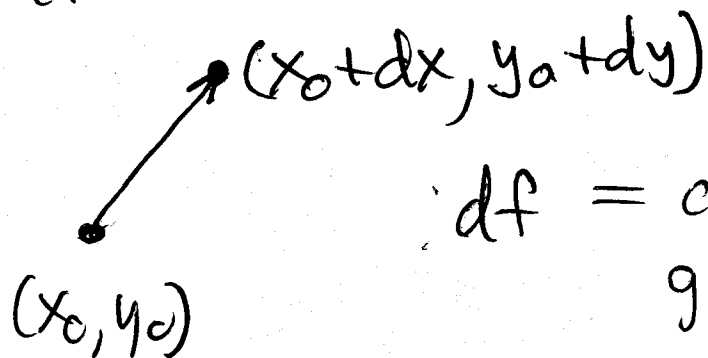 (x₀+dx, y₀+dy)
df = c
g
(x₀, y₀)